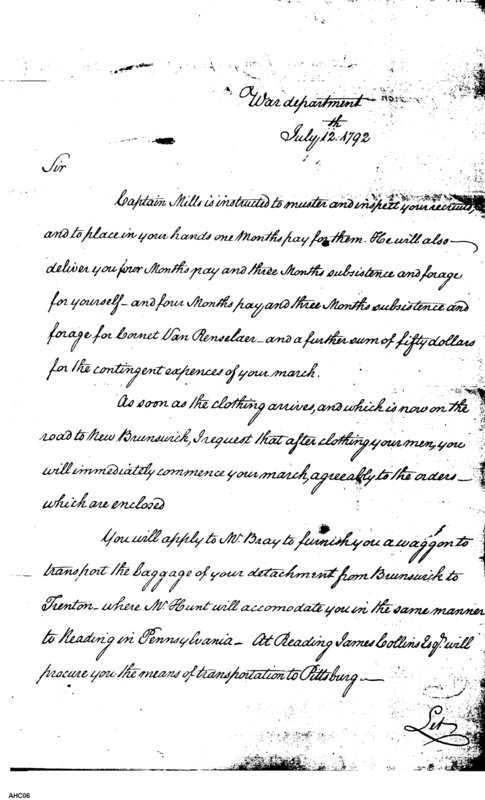 War department
July 12th 1792
Sir
Captain Mills is instructed to muster and inspect your recruits,
and to place in your hands one Months pay for them. He will also —
deliver you four Months pay and three Months subsistence and forage
for yourself — and four Months pay and three Months subsistence and
forage for Cornet Van Renselaer — and a further sum of fifty dollars
for the contingent expences of your march.
As soon as the clothing arrives, and which is now on the
road to New Brunswick, I request that after clothing your men, you
will immediately commence your march, agreeably to the orders —
which are enclosed
You will apply to Mr. Bray to furnish you a waggon to
transport the baggage of your detachment from Brunswick to
Trenton — where Mr. Hunt will accomodate you in the same manner
to Reading in Pennsylvania — At Reading James Collins Esqr. will
procure you the means of transportation to Pittsburg —
Let
AHC06